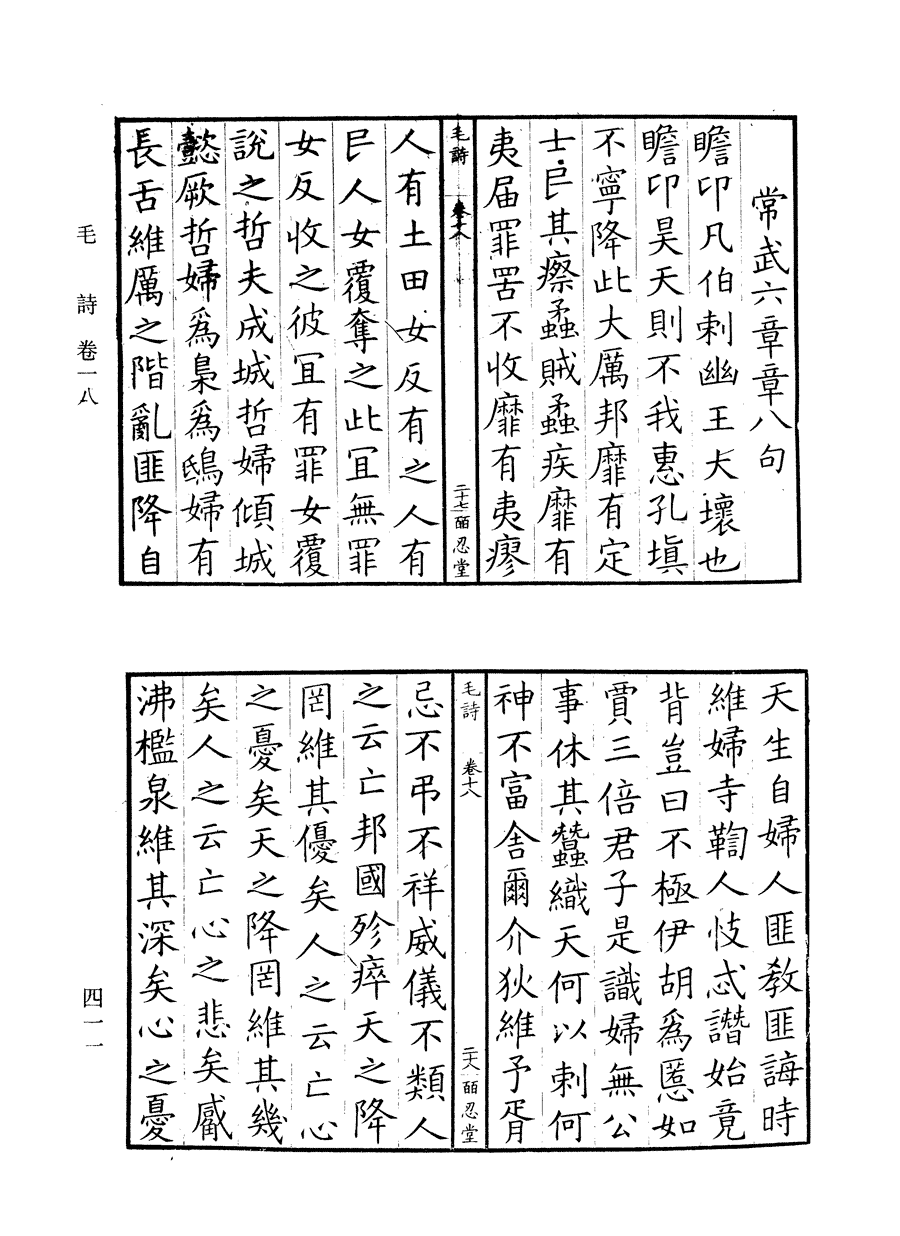 常武六章章八句
瞻卬凡伯刺幽王大壞也
瞻卬昊天則不我惠孔塡
不寧降此大厲邦靡有定
士民其瘵蟊賊蟊疾靡有
夷届罪罟不收靡有夷瘳
毛詩 卷十八 二十七 皕忍堂
人有土田女反有之人有
民人女覆奪之此宜無罪
女反收之彼宜有罪女覆
説之哲夫成城哲婦傾城
懿厥哲婦爲梟爲鴟婦有
長舌維厲之階亂匪降自
毛詩 卷一八
天生自婦人匪教匪誨時
維婦寺鞫人忮忒譖始竟
背豈曰不極伊胡爲慝如
賈三倍君子是識婦無公
事休其蠶織天何以刺何
神不富舍爾介狄維予胥
毛詩 卷十八 二十八 皕忍堂
忌不弔不祥威儀不類人
之云亡邦國殄瘁天之降
罔維其優矣人之云亡心
之憂矣天之降罔維其幾
矣人之云亡心之悲矣觱
沸檻泉維其深矣心之憂
四一一